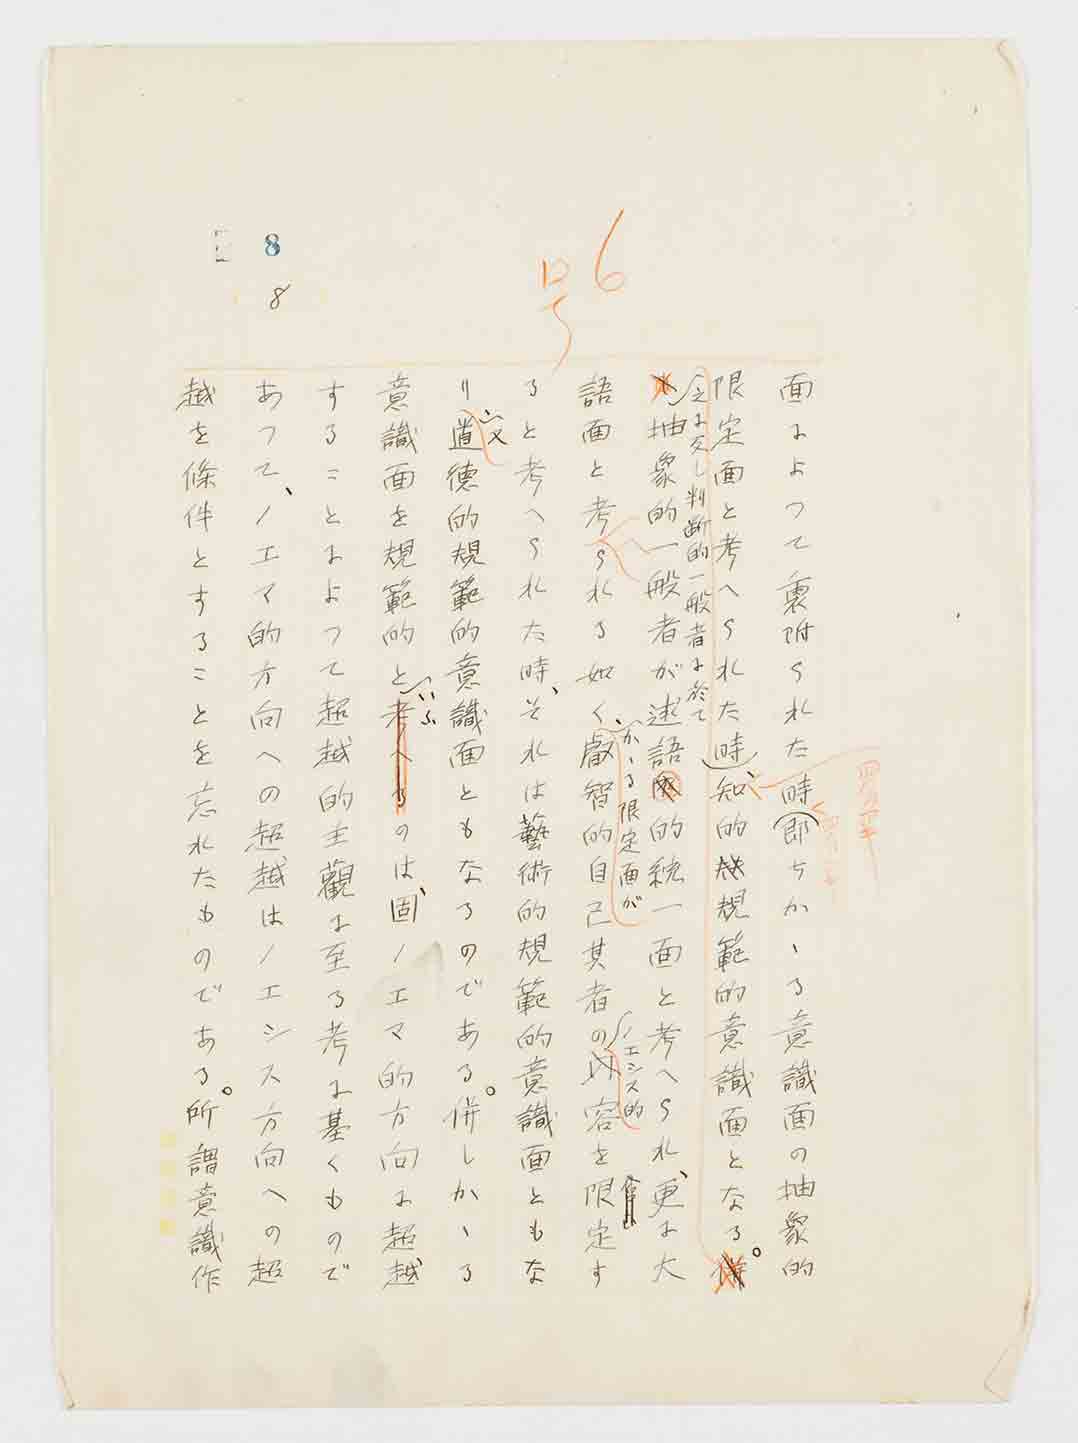 8
8
6
号
面によつて裏附られた時即ちかゝる意識面の抽象的
限定面と考へられた時、知的規範的意識面となる。
之に反し判断的一般者に於て
抽象的一般者が述語的統一面と考へられ、更に大
語面と考られる如く、叡智的自己其者の内容を限定す
かゝる限定面が
ノエシス的
ると考へられた時、それは藝術的規範的意識面ともな
り、又道德的規範的意識面ともなるのである。併しかゝる
意識面を規範的といふ考へるのは、固ノエマ的方向に超越
することによつて超越的主觀に至る考に基くもので
あつて、ノエマ的方向への超越はノエシス方向への超
越を條件とすることを忘れたものである。所謂意識作